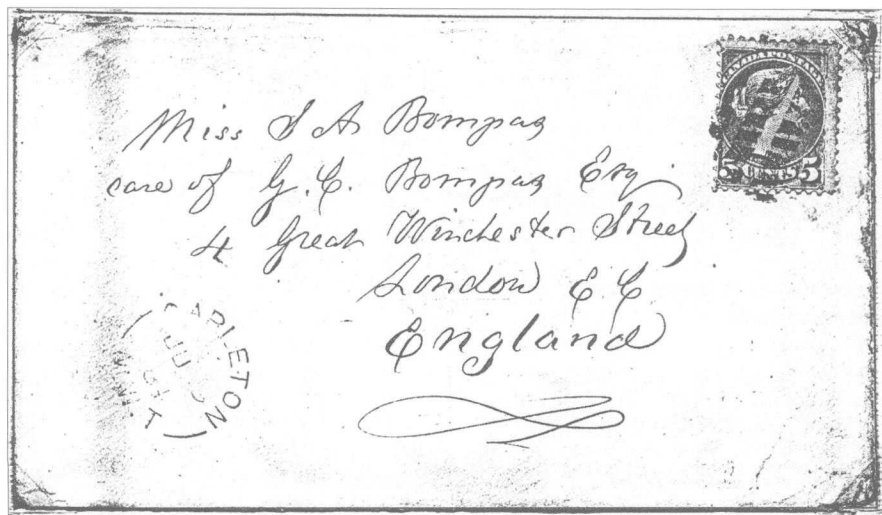 CANADA POSTAGE
5 CENTS 5
Miss S A Bompas
care of G. C. Bompas Esq.
4 Great Winchester Street
London E C
England
CARLETON